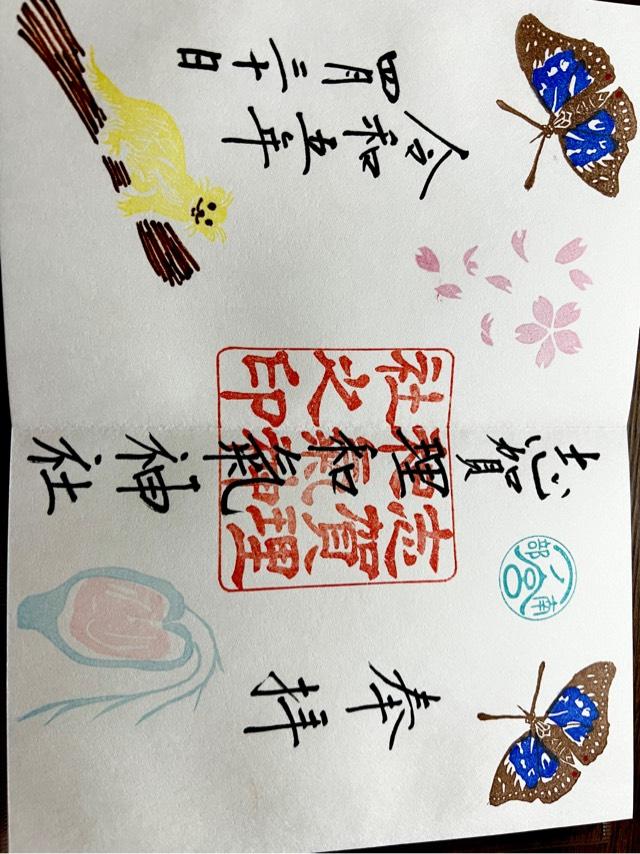 奉拝
志賀理和氣神社
南部
一宮
志賀理
和氣神
社之印
令和五年
四月三十日